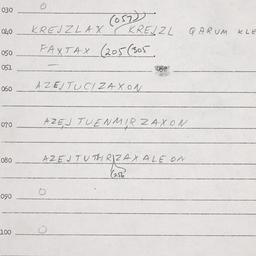 030 O
(057)
040 KREJZLAX KREJZL GARUM KLE
050 FAXTAX (205(305
051 —
060 AZEJTUCIZAXON
070 AZEJTUENMIRZAXON
080 AZEJTUTHRZAXALEON
090 O
100 O